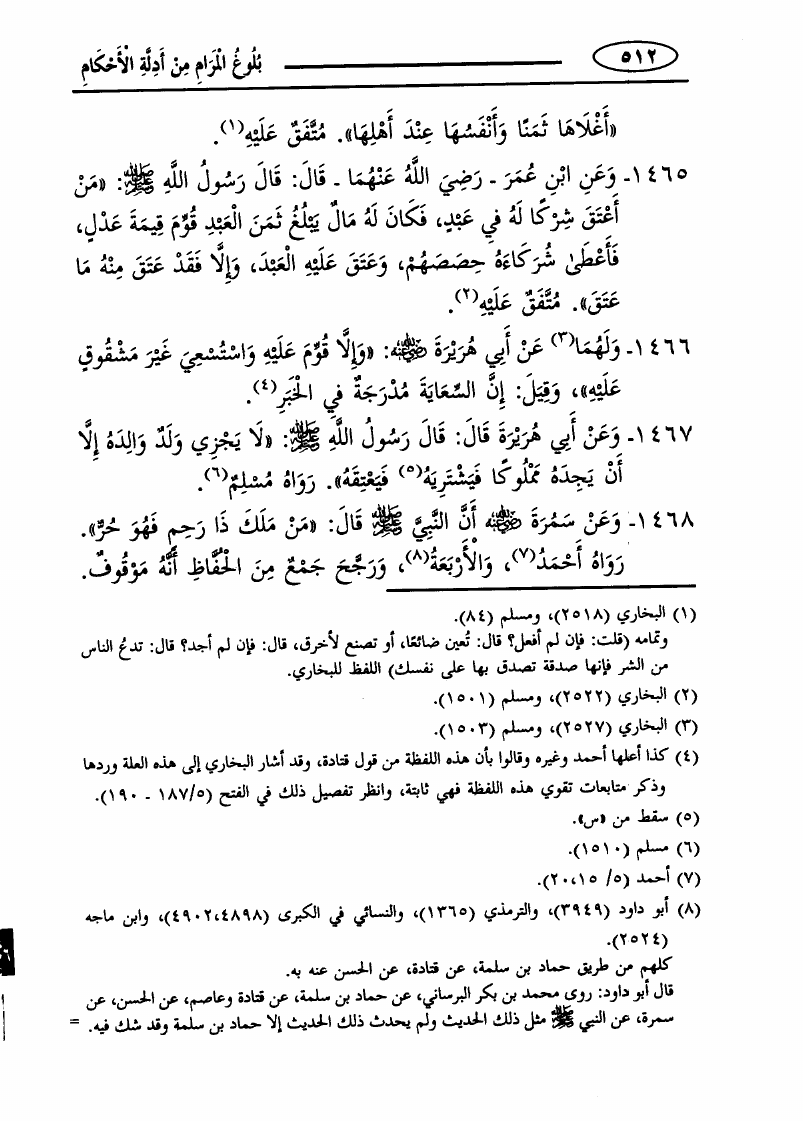 ٥١٢ بُلُوغُ الْمَرَامِ مِنْ أَدِلَّةِ الْأَحْكَامِ
«أَغْلَاهَا ثَمَنًا وَأَنْفَسُهَا عِنْدَ أَهْلِهَا». مُتَّفَقٌ عَلَيْهِ(١).
١٤٦٥- وَعَنِ ابْنِ عُمَرَ - رَضِيَ اللَّهُ عَنْهُمَا - قَالَ: قَالَ رَسُولُ اللَّهِ ﷺ: «مَنْ
أَعْتَقَ شِرْكًا لَهُ فِي عَبْدٍ، فَكَانَ لَهُ مَالٌ يَبْلُغُ ثَمَنَ الْعَبْدِ قُوِّمَ قِيمَةَ عَدْلٍ،
فَأَعْطَىٰ شُرَكَاءَهُ حِصَصَهُمْ، وَعَتَقَ عَلَيْهِ الْعَبْدَ، وَإِلَّا فَقَدْ عَتَقَ مِنْهُ مَا
عَتَقَ». مُتَّفَقٌ عَلَيْهِ(٢).
١٤٦٦- وَلَهُمَا(٣) عَنْ أَبِي هُرَيْرَةَ رضي الله عنه: «وَإِلَّا قُوِّمَ عَلَيْهِ وَاسْتُسْعِيَ غَيْرَ مَشْقُوقٍ
عَلَيْهِ»، وَقِيلَ: إِنَّ السِّعَايَةَ مُدْرَجَةٌ فِي الْخَبَرِ(٤).
١٤٦٧- وَعَنْ أَبِي هُرَيْرَةَ قَالَ: قَالَ رَسُولُ اللَّهِ ﷺ: «لَا يَجْزِي وَلَدٌ وَالِدَهُ إِلَّا
أَنْ يَجِدَهُ مَمْلُوكًا فَيَشْتَرِيَهُ(٥) فَيَعْتِقَهُ». رَوَاهُ مُسْلِمٌ(٦).
١٤٦٨- وَعَنْ سَمُرَةَ رضي الله عنه أَنَّ النَّبِيَّ ﷺ قَالَ: «مَنْ مَلَكَ ذَا رَحِمٍ فَهُوَ حُرٌّ».
رَوَاهُ أَحْمَدُ(٧)، وَالْأَرْبَعَةُ(٨)، وَرَجَّحَ جَمْعٌ مِنَ الْحُفَّاظِ أَنَّهُ مَوْقُوفٌ.
(١) البخاري (٢٥١٨)، ومسلم (٨٤).
وتمامه (قلت: فإن لم أفعل؟ قال: تُعين ضائعًا، أو تصنع لأخرق، قال: فإن لم أجد؟ قال: تدعُ الناس
من الشر فإنها صدقة تصدق بها على نفسك) اللفظ للبخاري.
(٢) البخاري (٢٥٢٢)، ومسلم (١٥٠١).
(٣) البخاري (٢٥٢٧)، ومسلم (١٥٠٣).
(٤) كذا أعلها أحمد وغيره وقالوا بأن هذه اللفظة من قول قتادة، وقد أشار البخاري إلى هذه العلة وردها
وذكر متابعات تقوي هذه اللفظة فهي ثابتة، وانظر تفصيل ذلك في الفتح (١٨٧/٥ - ١٩٠).
(٥) سقط من «س».
(٦) مسلم (١٥١٠).
(٧) أحمد (٥/ ١٥،٢٠).
(٨) أبو داود (٣٩٤٩)، والترمذي (١٣٦٥)، والنسائي في الكبرى (٤٨٩٨،٤٩٠٢)، وابن ماجه
(٢٥٢٤).
كلهم من طريق حماد بن سلمة، عن قتادة، عن الحسن عنه به.
قال أبو داود: روى محمد بن بكر البرساني، عن حماد بن سلمة، عن قتادة وعاصم، عن الحسن، عن
سمرة، عن النبي ﷺ مثل ذلك الحديث ولم يحدث ذلك الحديث إلا حماد بن سلمة وقد شك فيه. =